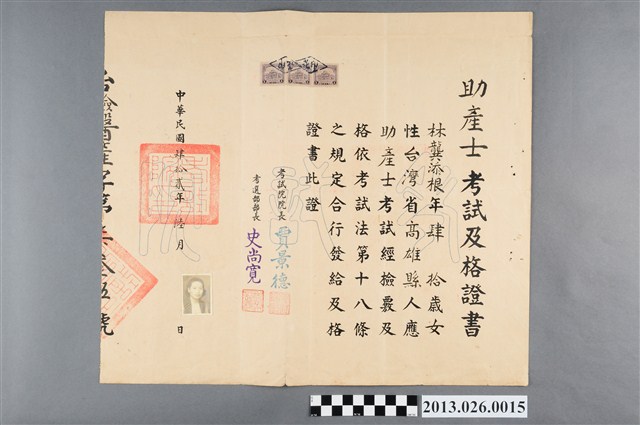 助產士考試及格證書
林龔添根年肆拾歲女
性台灣省高雄縣人應
助產士考試經檢覈及
格依考試法第十八條
之規定合行發給及格
證書此證
考試院院長 賈景德
考選部部長 史尚寬
中華民國肆拾貳年陸月 日
台檢醫產字第 叁伍號
2013.026.0015